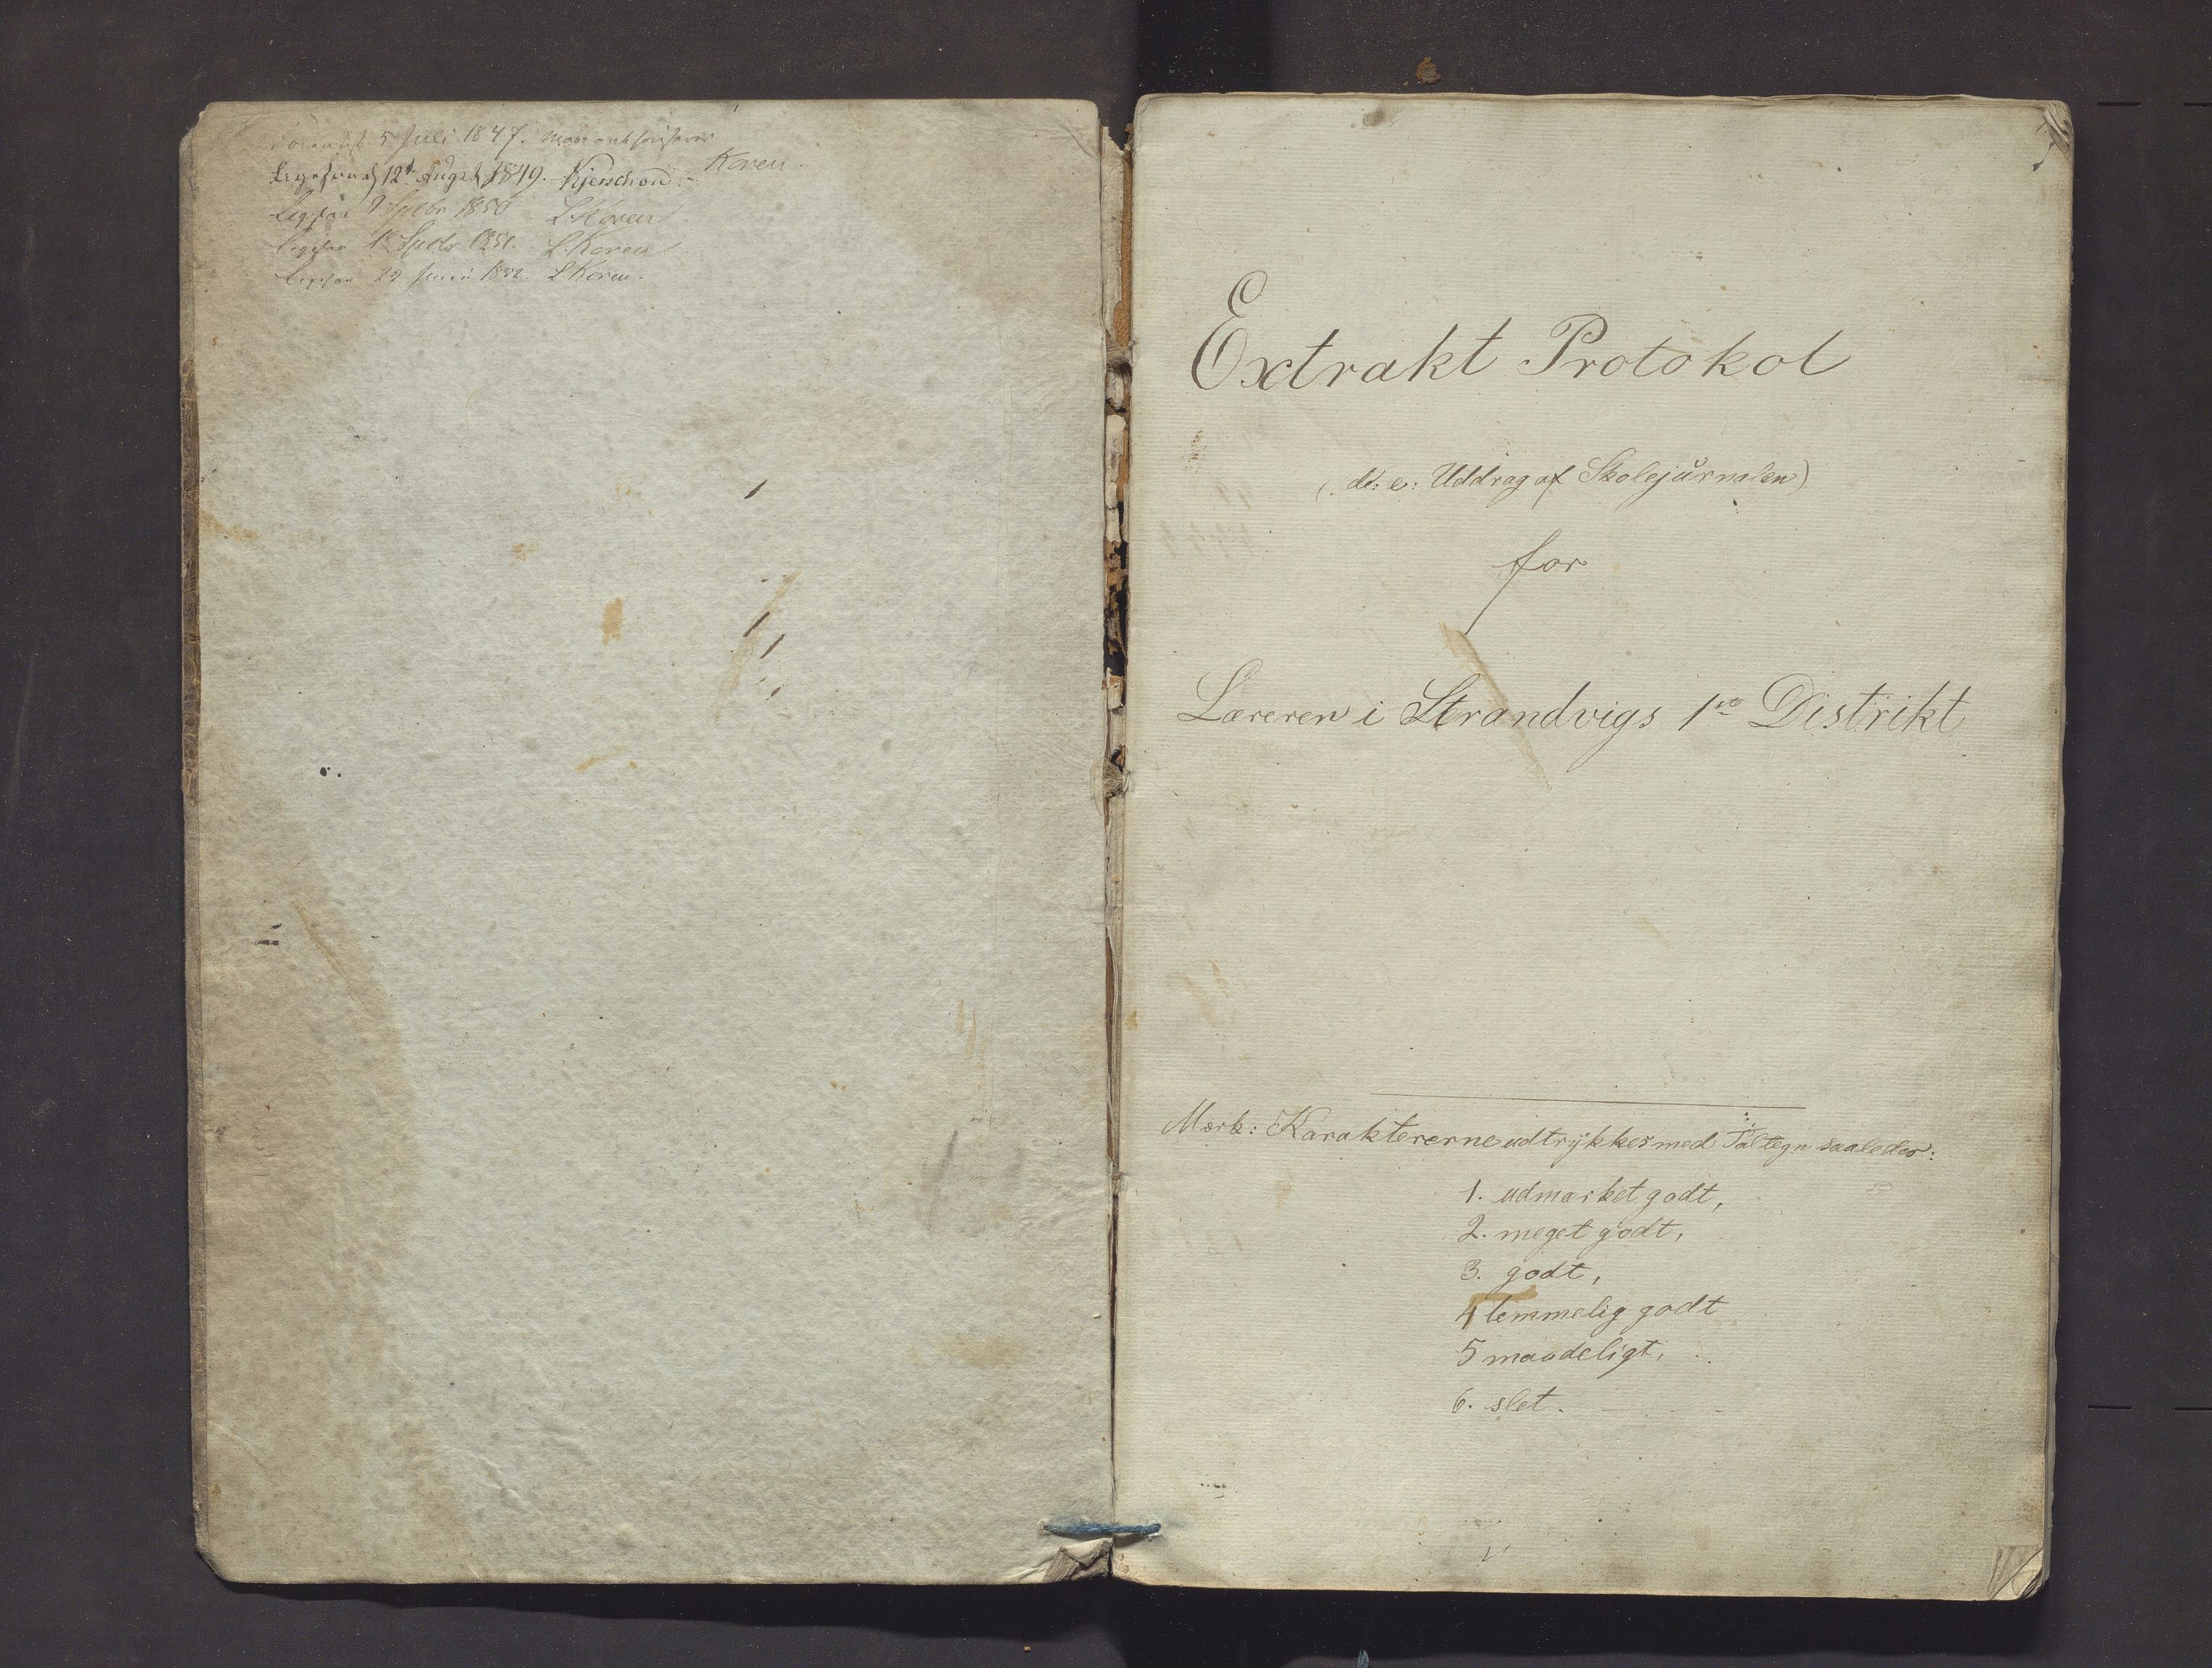 5 Juli 1847.
Koren.
12t August 1849. Kjerschow.
9 Septbr 1850 L. Koren
Septbr 1851. L. Koren
22 Juni 1852. L Koren.
Extrakt Protokol
(d: e: Uddrag af Skolejŭrnalen)
for
Læreren i Strandvigs 1ste Distrikt
Mærk: Karaktererne udtrykkes med Taltegn saaledes:
1. udmærket godt,
2. meget godt,
3. godt,
4 temmelig godt
5 maadeligt,
6. slet.